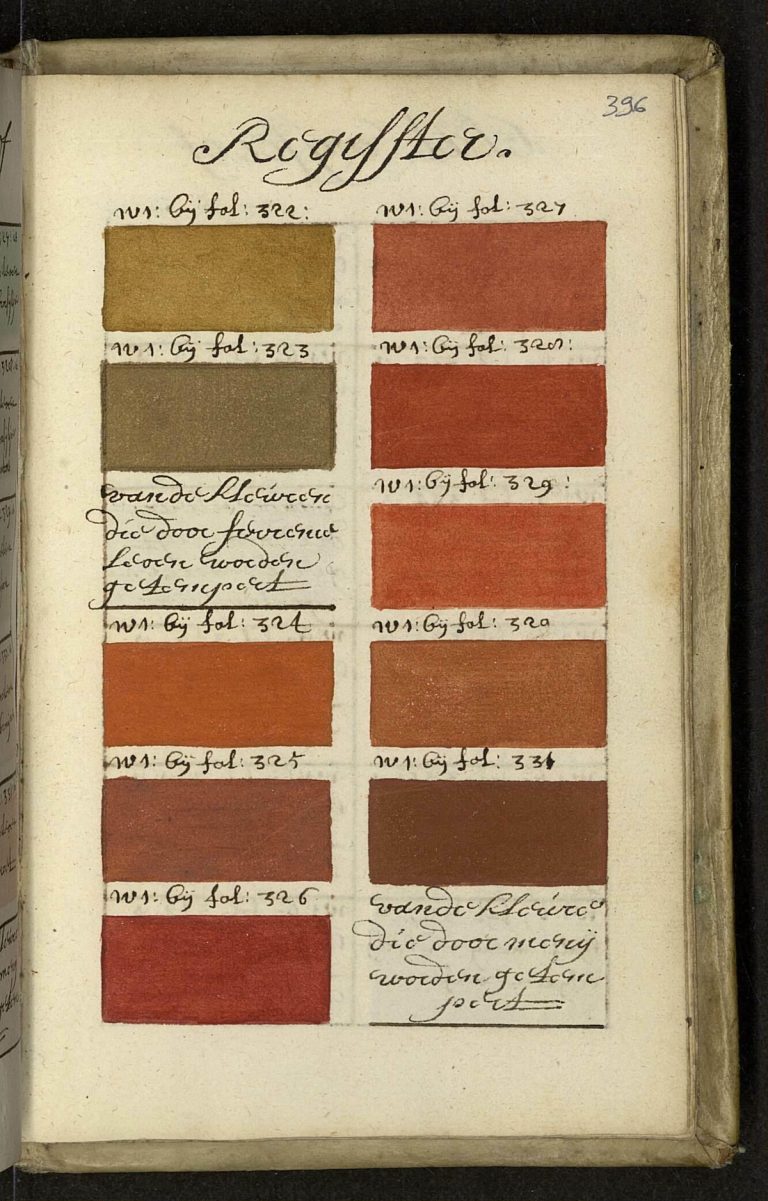 396
Regisster.
w1: bij fol: 322:
w1: bij fol: 323
van de kleúren
die door
worden
getempert
w1: bij fol: 324
w1: bij fol: 325
w1: bij fol: 326
w1: bij fol: 327
w1: bij fol: 328:
w1: bij fol: 329:
w1: bij fol: 320
w1: bij fol: 331
van de kleúre
die door menij
worden getem
pert